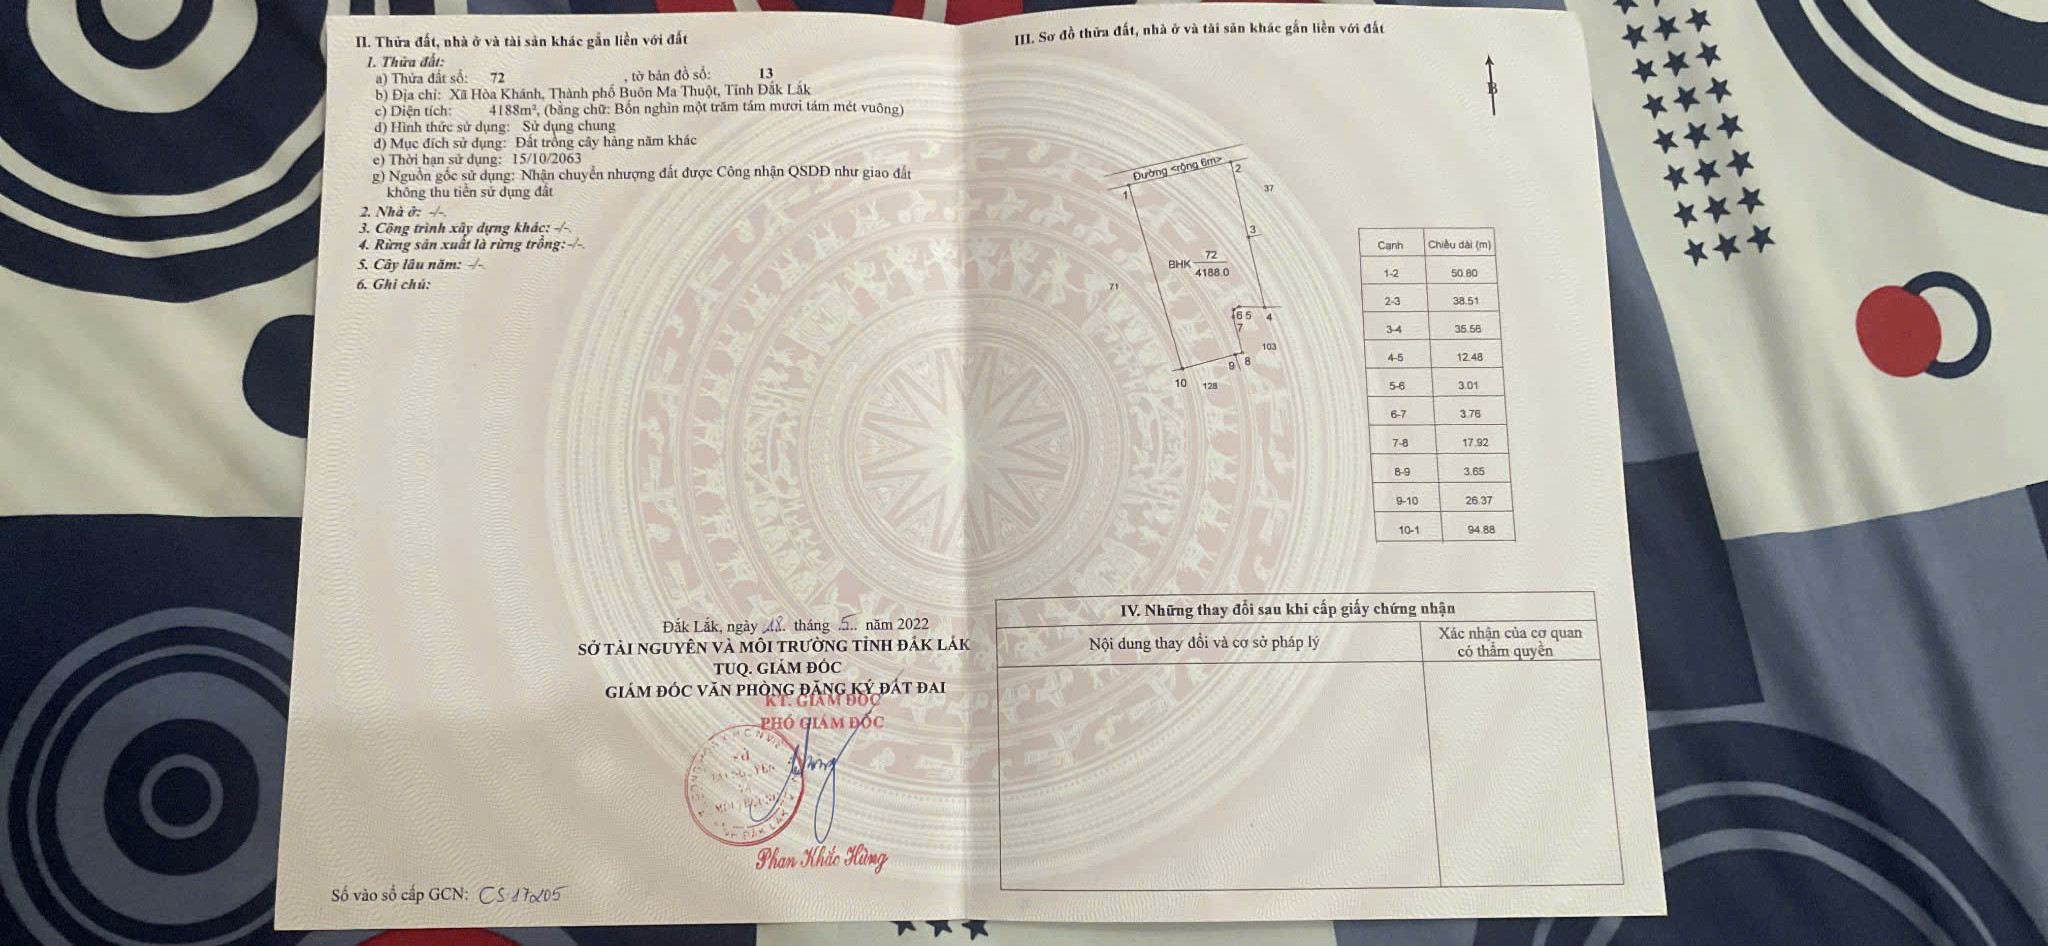 II. Thửa đất, nhà ở và tài sản khác gắn liền với đất
1. Thửa đất:
a) Thửa đất số: 72 , tờ bản đồ số: 13
b) Địa chỉ: Xã Hòa Khánh, Thành phố Buôn Ma Thuột, Tỉnh Đắk Lắk
c) Diện tích: 4188m², (bằng chữ: Bốn nghìn một trăm tám mươi tám mét vuông)
d) Hình thức sử dụng: Sử dụng chung
đ) Mục đích sử dụng: Đất trồng cây hàng năm khác
e) Thời hạn sử dụng: 15/10/2063
g) Nguồn gốc sử dụng: Nhận chuyển nhượng đất được Công nhận QSDĐ như giao đất
không thu tiền sử dụng đất
2. Nhà ở: -/-.
3. Công trình xây dựng khác: -/-.
4. Rừng sản xuất là rừng trồng: -/-.
5. Cây lâu năm: -/-.
6. Ghi chú:
Đắk Lắk, ngày 18. tháng 5.. năm 2022
SỞ TÀI NGUYÊN VÀ MÔI TRƯỜNG TỈNH ĐẮK LẮK
TUQ. GIÁM ĐỐC
GIÁM ĐỐC VĂN PHÒNG ĐĂNG KÝ ĐẤT ĐAI
KT. GIÁM ĐỐC
PHÓ GIÁM ĐỐC
Phan Khắc Hùng
Số vào sổ cấp GCN: CS 17205
III. Sơ đồ thửa đất, nhà ở và tài sản khác gắn liền với đất
B
Đường <rộng 6m>
1
2
37
3
BHK 72
4188.0
71
6 5 4
7
103
9 8
10 128
Cạnh Chiều dài (m)
1-2 50.80
2-3 38.51
3-4 35.56
4-5 12.48
5-6 3.01
6-7 3.76
7-8 17.92
8-9 3.65
9-10 26.37
10-1 94.88
IV. Những thay đổi sau khi cấp giấy chứng nhận
Nội dung thay đổi và cơ sở pháp lý
Xác nhận của cơ quan
có thẩm quyền